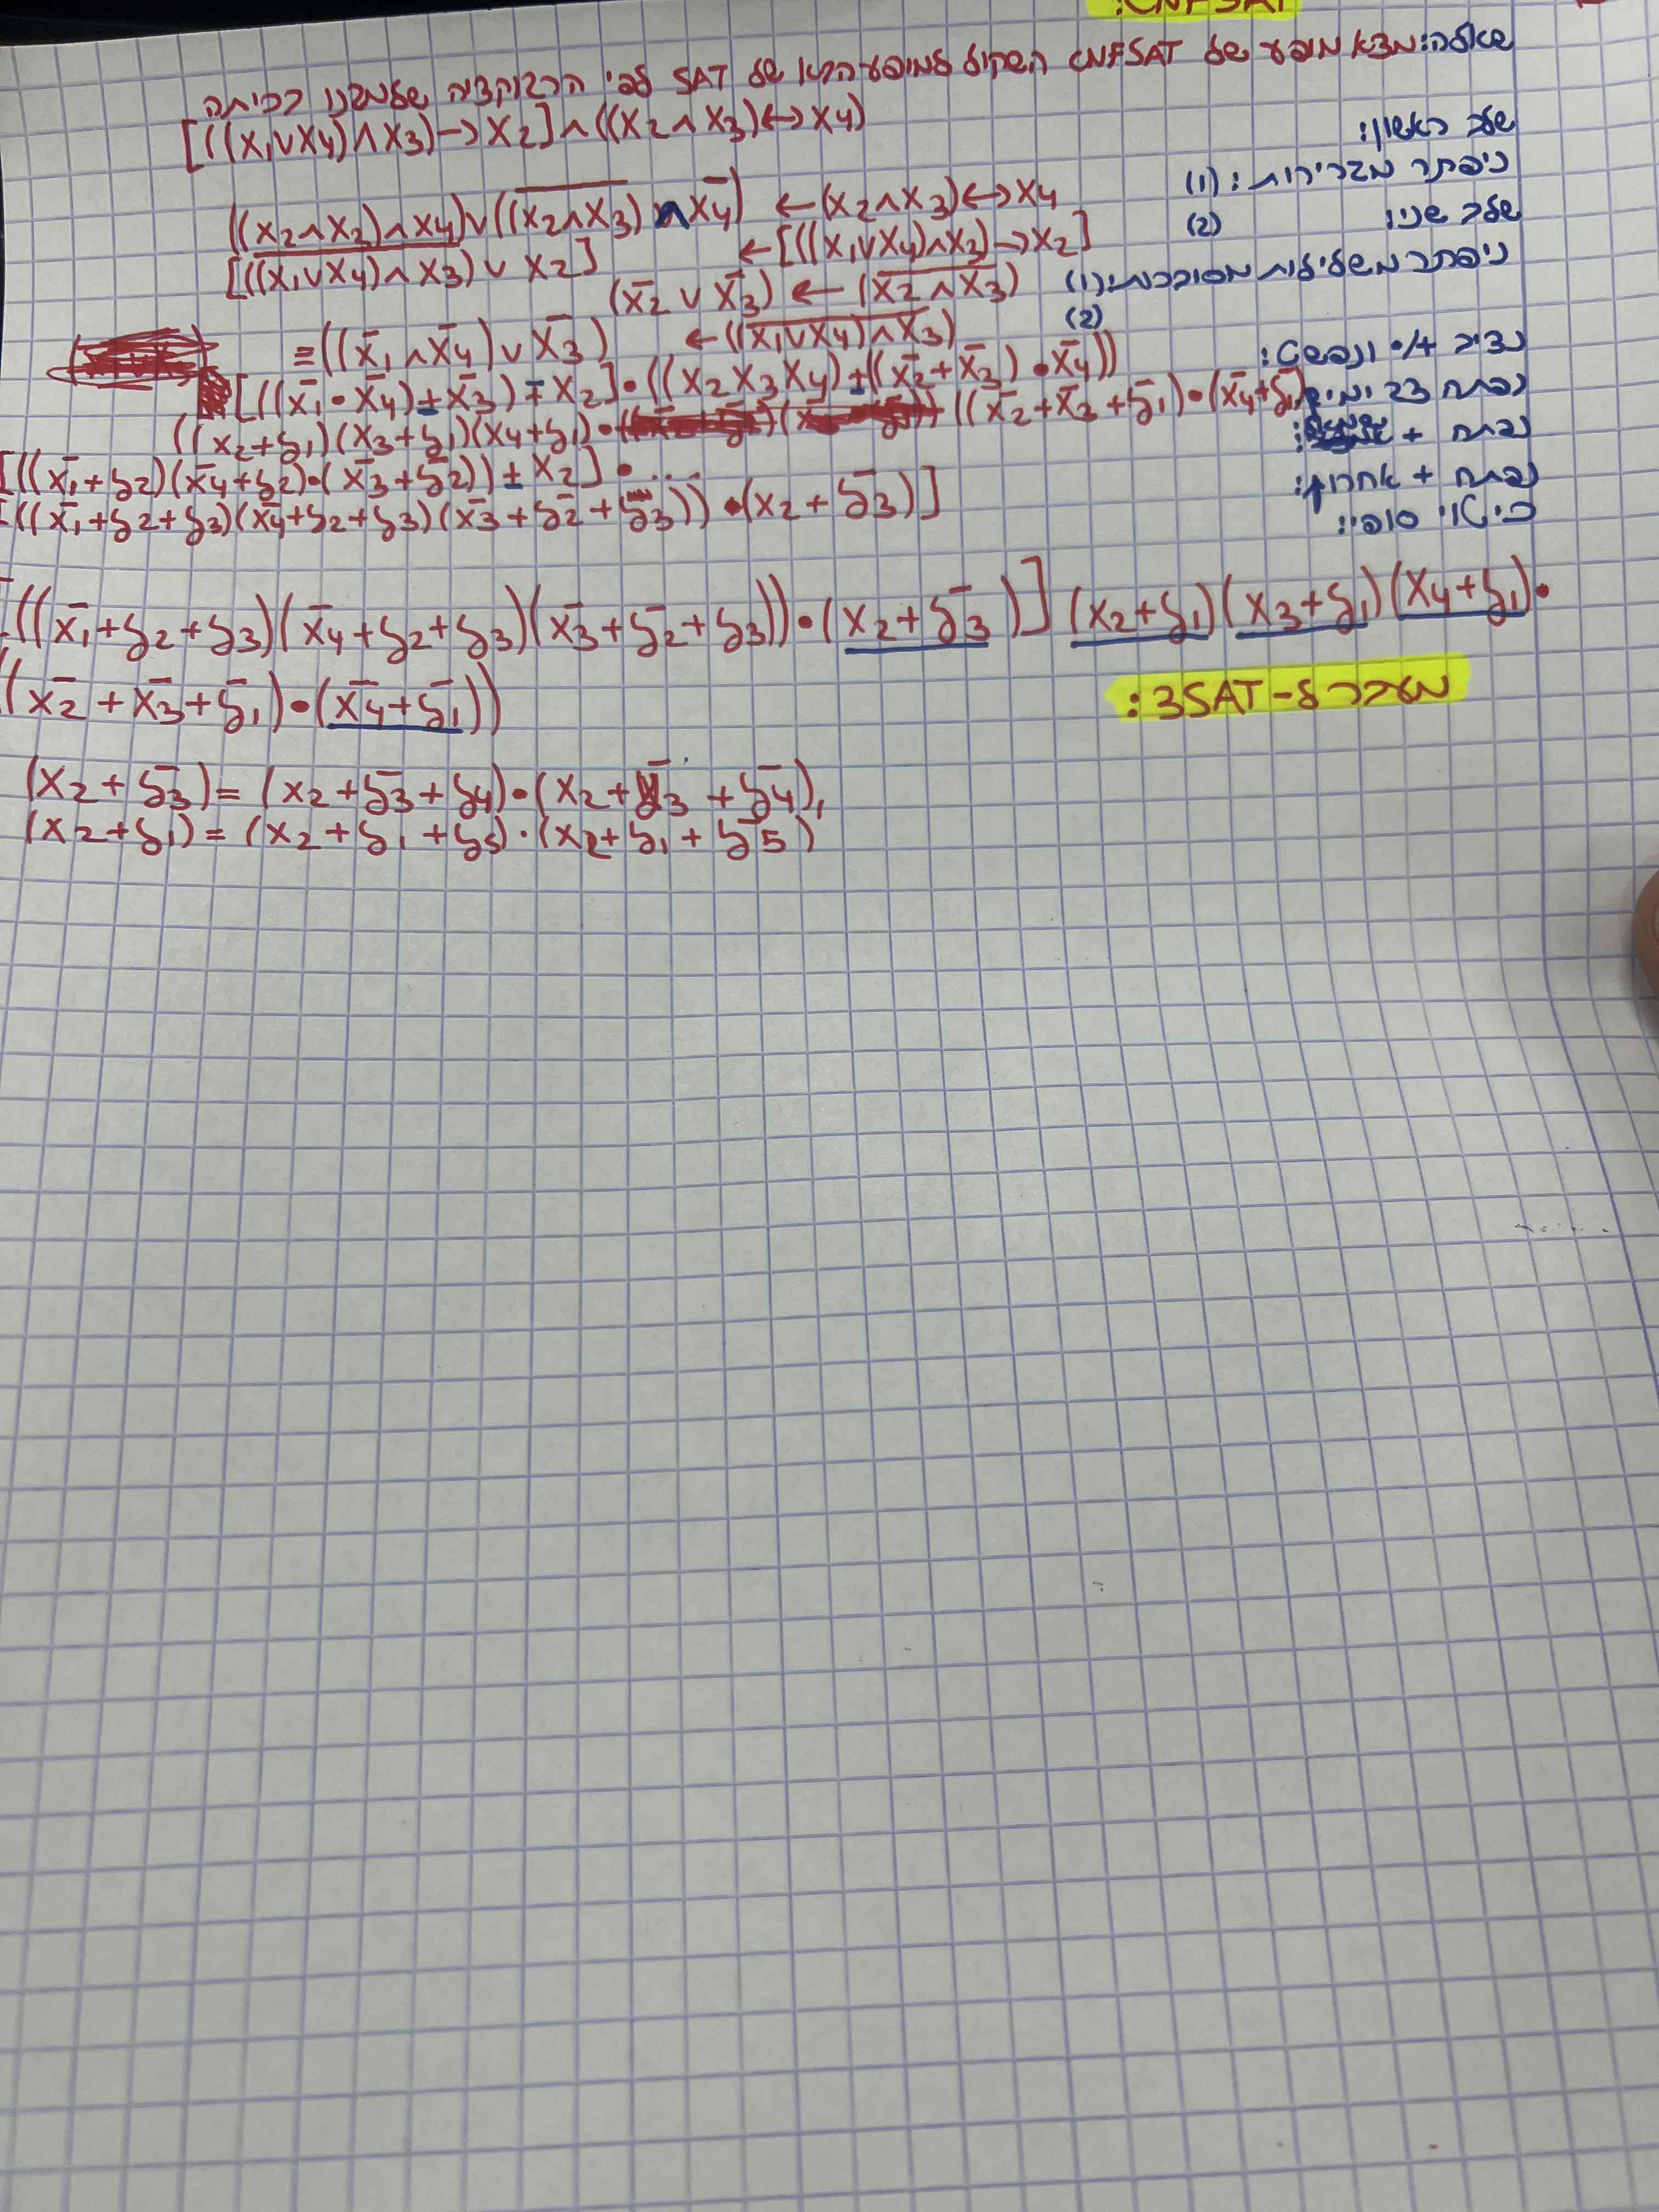 :CNFSAT
שאלה: מצא מופע של CNFSAT השקול למופע הבא של SAT לפי הרדוקציה שלמדנו בכיתה
[((x₁∨x₄)∧x₃)→x₂]∧((x₂∧x₃)↔x₄)
שלב ראשון:
ניפתר מגרירות: (1) (x₂∧x₃)↔x₄ ← ((x₂∧x₃)∧x₄)∨((x̅₂̅∧̅x̅₃̅)∧x̄₄)
שלב שני: (2) [((x₁∨x₄)∧x₃)→x₂] ← [((̅x̅₁̅∨̅x̅₄̅)̅∧̅x̅₃̅)∨x₂]
ניפתר משלילות מסובכות: (1) (x̅₂̅∧̅x̅₃̅) ← (x̄₂∨x̄₃)
(2) ((̅x̅₁̅∨̅x̅₄̅)̅∧̅x̅₃̅) ← ≡((x̄₁∧x̄₄)∨x̄₃)
נציב +/• ונפשט: [((x̄₁•x̄₄)+x̄₃)+x₂]•((x₂x₃x₄)+((x̄₂+x̄₃)•x̄₄))
נפתח צד ימין: ((x₂+y₁)(x₃+y₁)(x₄+y₁)•((x̄₂+x̄₃+ȳ₁)•(x̄₄+ȳ₁)
נפתח +: [((x̄₁+y₂)(x̄₄+y₂)•(x̄₃+ȳ₂))+x₂]•....
נפתח + אחרון: [((x̄₁+y₂+y₃)(x̄₄+y₂+y₃)(x̄₃+ȳ₂+y₃))•(x₂+ȳ₃)]
ביטוי סופי:
[((x̄₁+y₂+y₃)(x̄₄+y₂+y₃)(x̄₃+ȳ₂+y₃))•(x₂+ȳ₃)](x₂+y₁)(x₃+y₁)(x₄+y₁)•
((x̄₂+x̄₃+ȳ₁)•(x̄₄+ȳ₁))
מעבר ל-3SAT:
(x₂+ȳ₃)=(x₂+ȳ₃+y₄)•(x₂+ȳ₃+ȳ₄),
(x₂+y₁)=(x₂+y₁+y₅)•(x₂+y₁+ȳ₅)